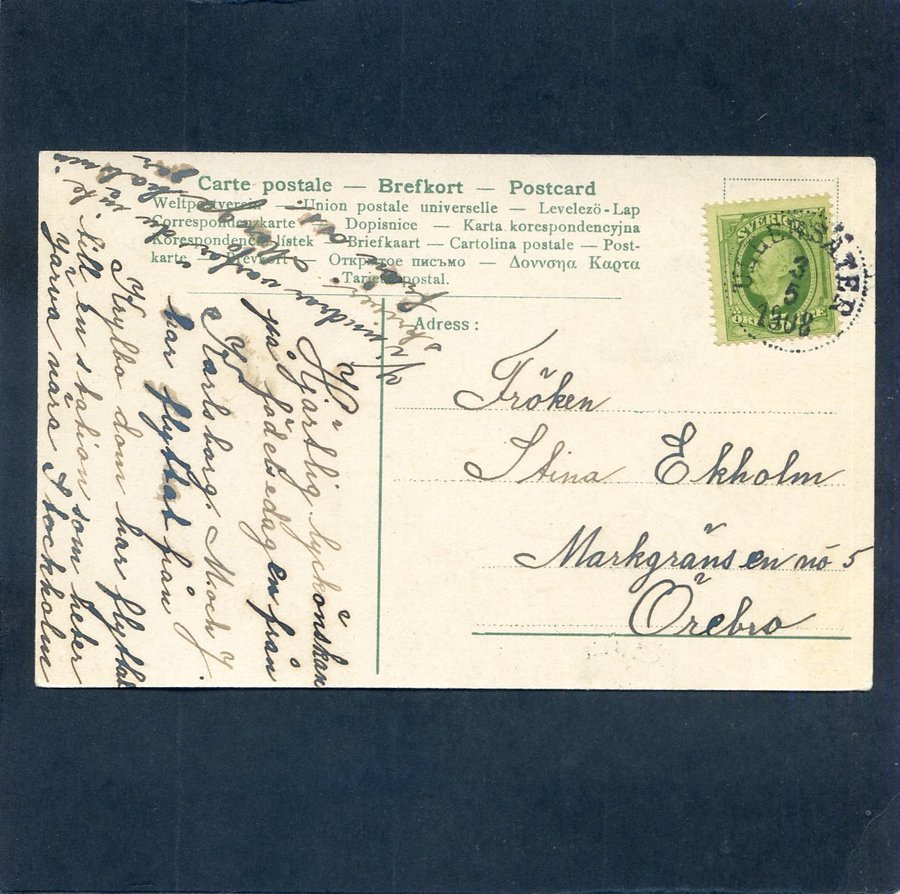 Carte postale — Brefkort — Postcard
Weltpostverein — Union postale universelle — Levelező-Lap
Correspondenzkarte — Dopisnice — Karta korespondencyjna
Korespondenční lístek — Briefkaart — Cartolina postale — Post-
karte — Brevkort — Открытое письмо — Δοννσηα Καρτα
Tarjeta postal.
SVERIGE
3
5
1908
Adress:
Fröken
Stina Ekholm
Markgränsen no 5
Örebro
Hjärtlig lyckönskan
på födelsedagen från
Karlsborg. Moch J.
har flyttat från
Krylbo dom har flyttat
till En station som heter
Järva nära Stockholm